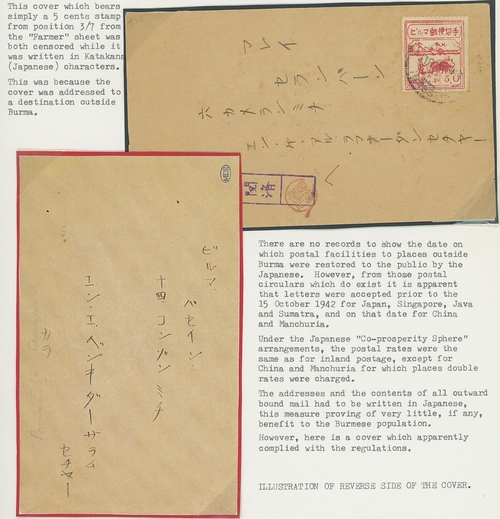 This cover which bears
simply a 5 cents stamp
from position 3/7 from
the "Farmer" sheet was
both censored while it
was written in Katakana
(Japanese) characters.
This was because the
cover was addressed to
a destination outside
Burma.
ビルマ郵便切手
5 C
マレイ
セランバーン
六カメランミチ
閲済
ビルマ、バセイン
There are no records to show the date on
which postal facilities to places outside
Burma were restored to the public by the
Japanese. However, from those postal
circulars which do exist it is apparent
that letters were accepted prior to the
15 October 1942 for Japan, Singapore, Java
and Sumatra, and on that date for China
and Manchuria.
Under the Japanese "Co-prosperity Sphere"
arrangements, the postal rates were the
same as for inland postage, except for
China and Manchuria for which places double
rates were charged.
The addresses and the contents of all outward
bound mail had to be written in Japanese,
this measure proving of very little, if any,
benefit to the Burmese population.
However, here is a cover which apparently
complied with the regulations.
ILLUSTRATION OF REVERSE SIDE OF THE COVER.